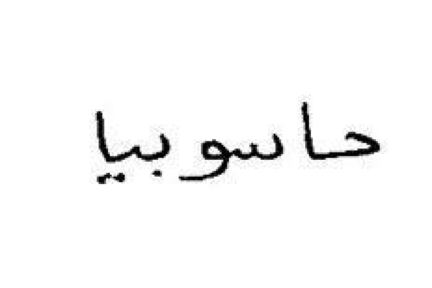 حاسوبيا